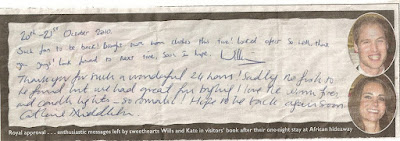 20th - 21st October 2010.
Such fun to be back! Brought more warm clothes this time! Looked after so well. Thank
you guys! Look forward to next time, soon I hope. William
Thank you for such a wonderful 24 hours! Sadly no fish to
be found but we had great fun trying. I love the warm fires
and candle lights – so romantic! Hope to be back again soon.
Catherine Middleton.
Royal approval . . . enthusiastic messages left by sweethearts Wills and Kate in visitors' book after their one-night stay at African hideaway